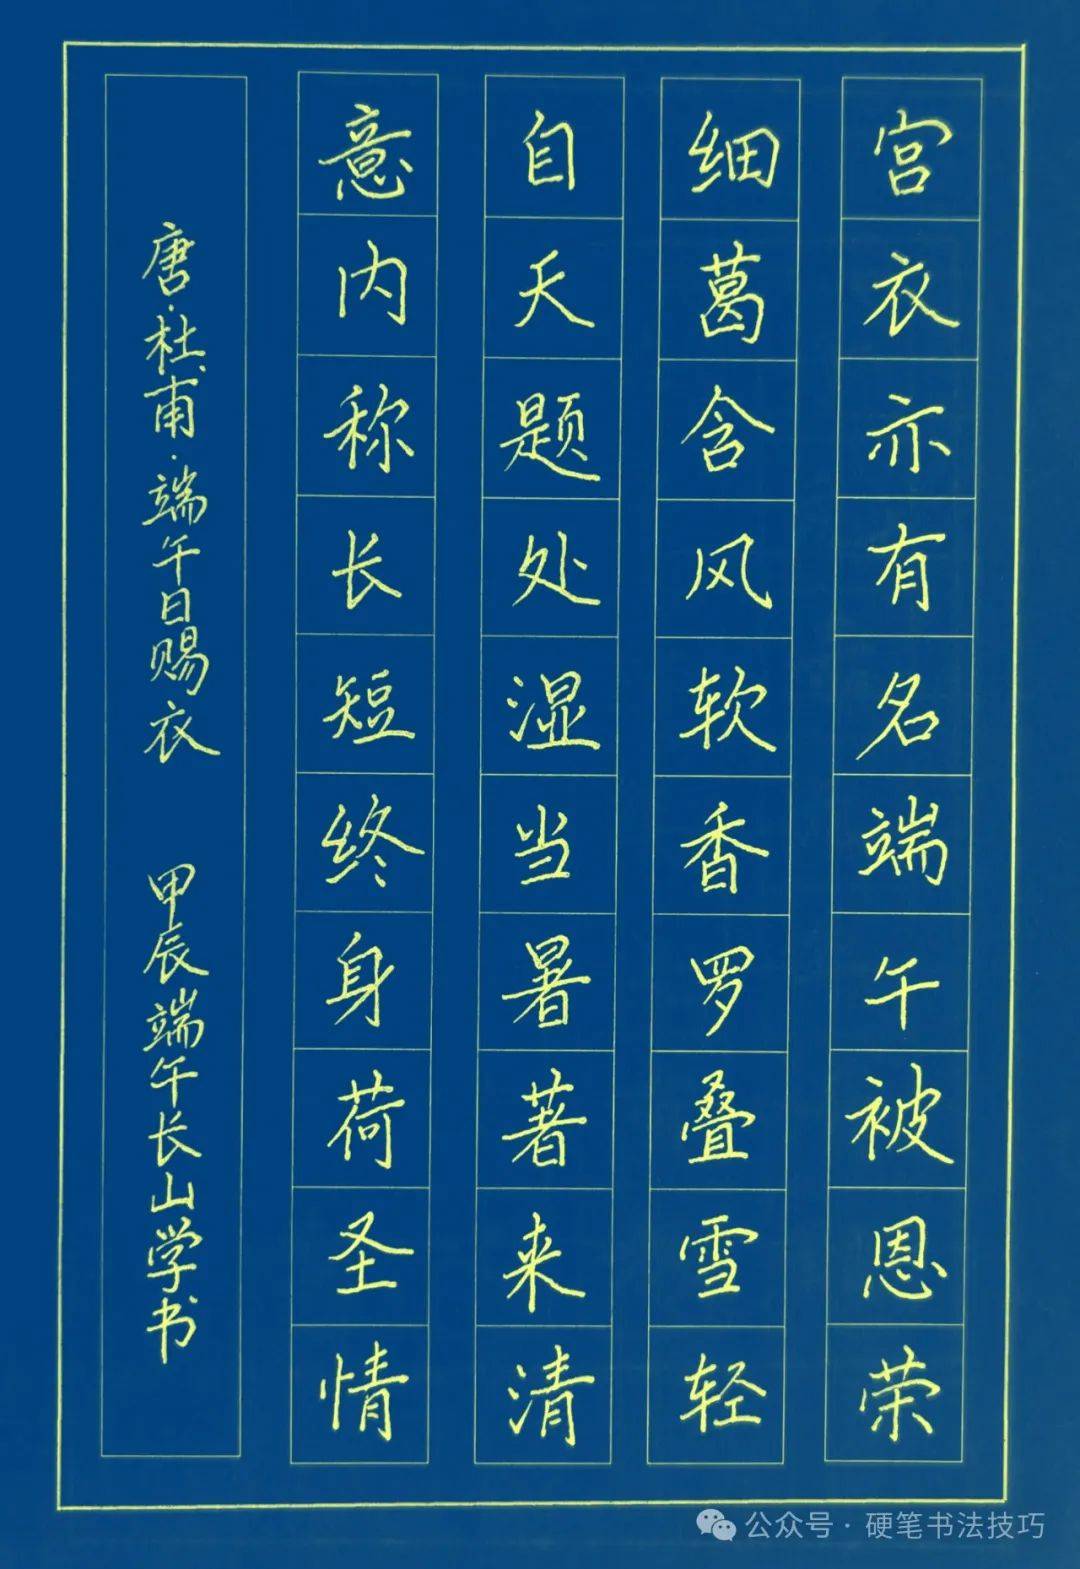 宫衣亦有名端午被恩荣
细葛含风软香罗叠雪轻
自天题处湿当暑著来清
意内称长短终身荷圣情
唐·杜甫·端午日赐衣 甲辰端午长山学书
公众号·硬笔书法技巧